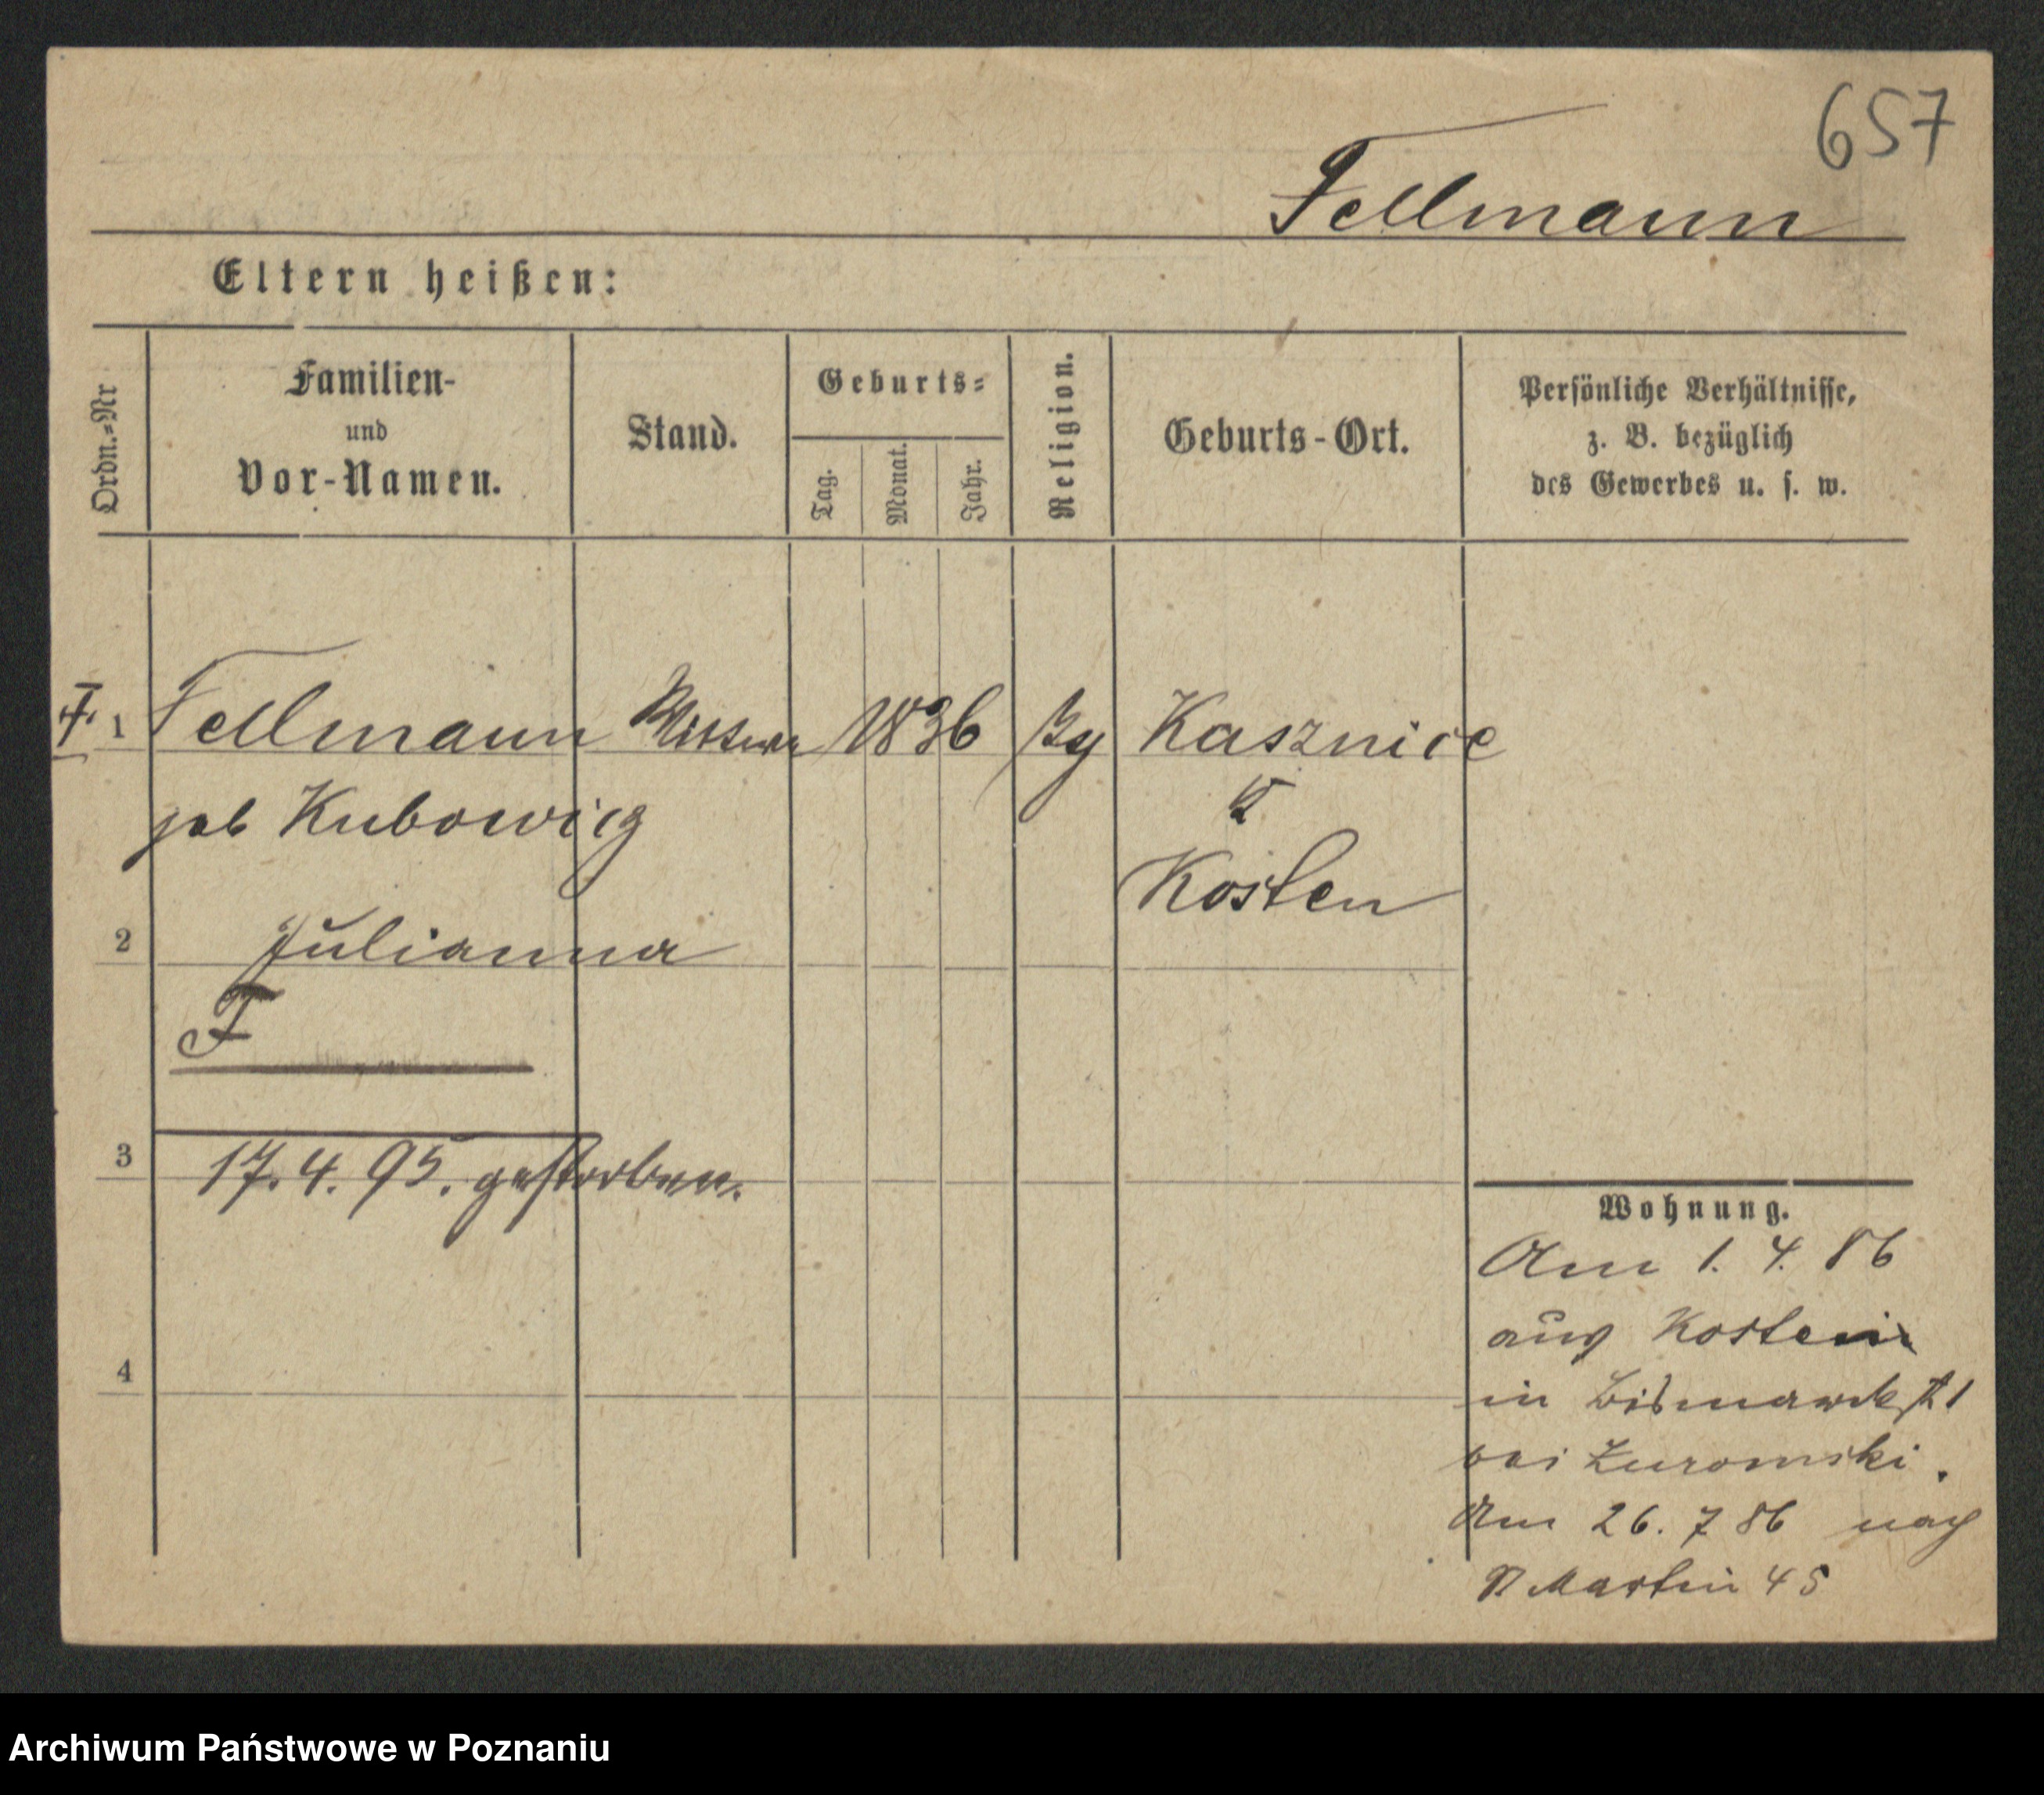 657
Fellmann
Eltern heißen:
Ordn.=Nr
Familien-
und
Vor-Namen.
Stand.
Geburts=
Tag.
Monat.
Jahr.
Religion.
Geburts-Ort.
Persönliche Verhältnisse,
z. B. bezüglich
des Gewerbes u. s. w.
1 Fellmann Wittwe 1836 Kasznice
geb Kubowicz
Kosten
2 Julianna
3 17. 4. 95. gestorben.
4
Wohnung.
Am 1. 4. 86
aus Kosten
in Bismarckst 1
bei Zuromski.
Am 26. 7 86 nach
St Martin 45
Archiwum Państwowe w Poznaniu